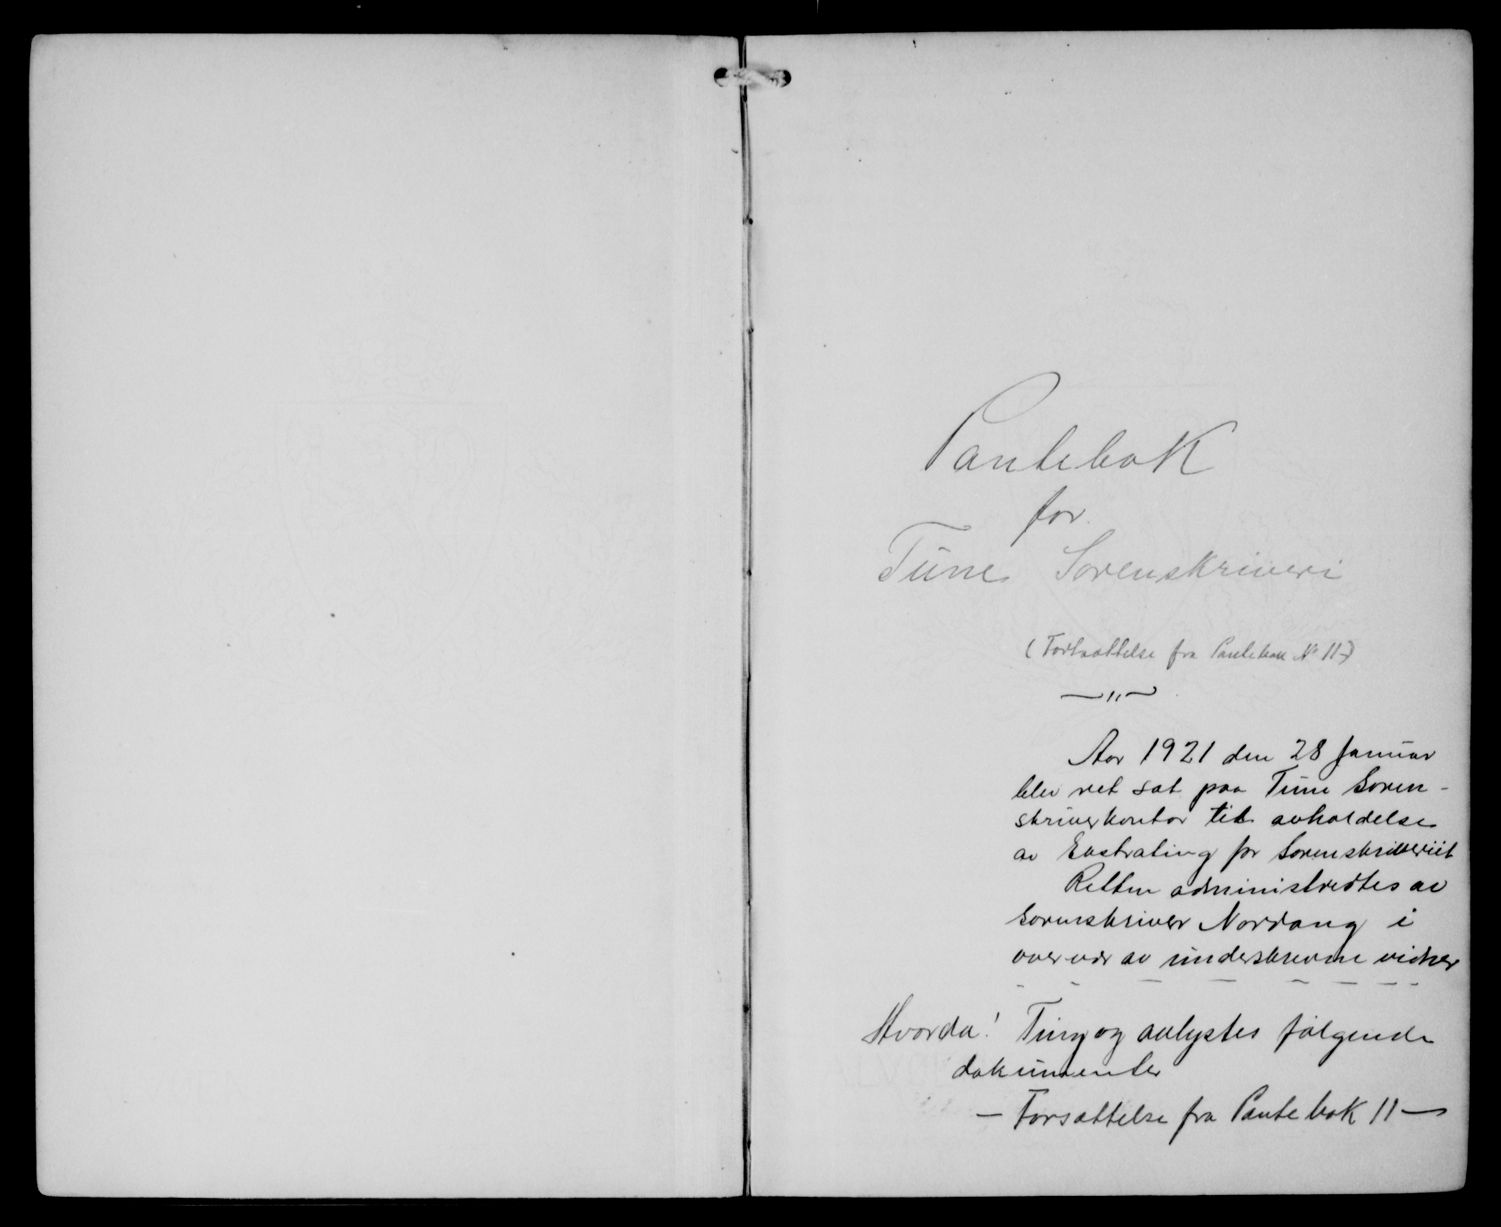 Pantebok
for
Tune Sorenskriveri
(Fortsættelse fra Pantebok No 11)
—"—
Aar 1921 den 28 Januar
blev ret sat paa Tune Soren-
skriverkontor til avholdelse
av Ekstrating for Sorenskriveriet
Retten administredtes av
Sorenskriver Nordang i
overvær av underskrevne vidner
Hvorda! Ting og avlystes følgende
dokumenter
— Forsættelse fra Pantebok 11 —